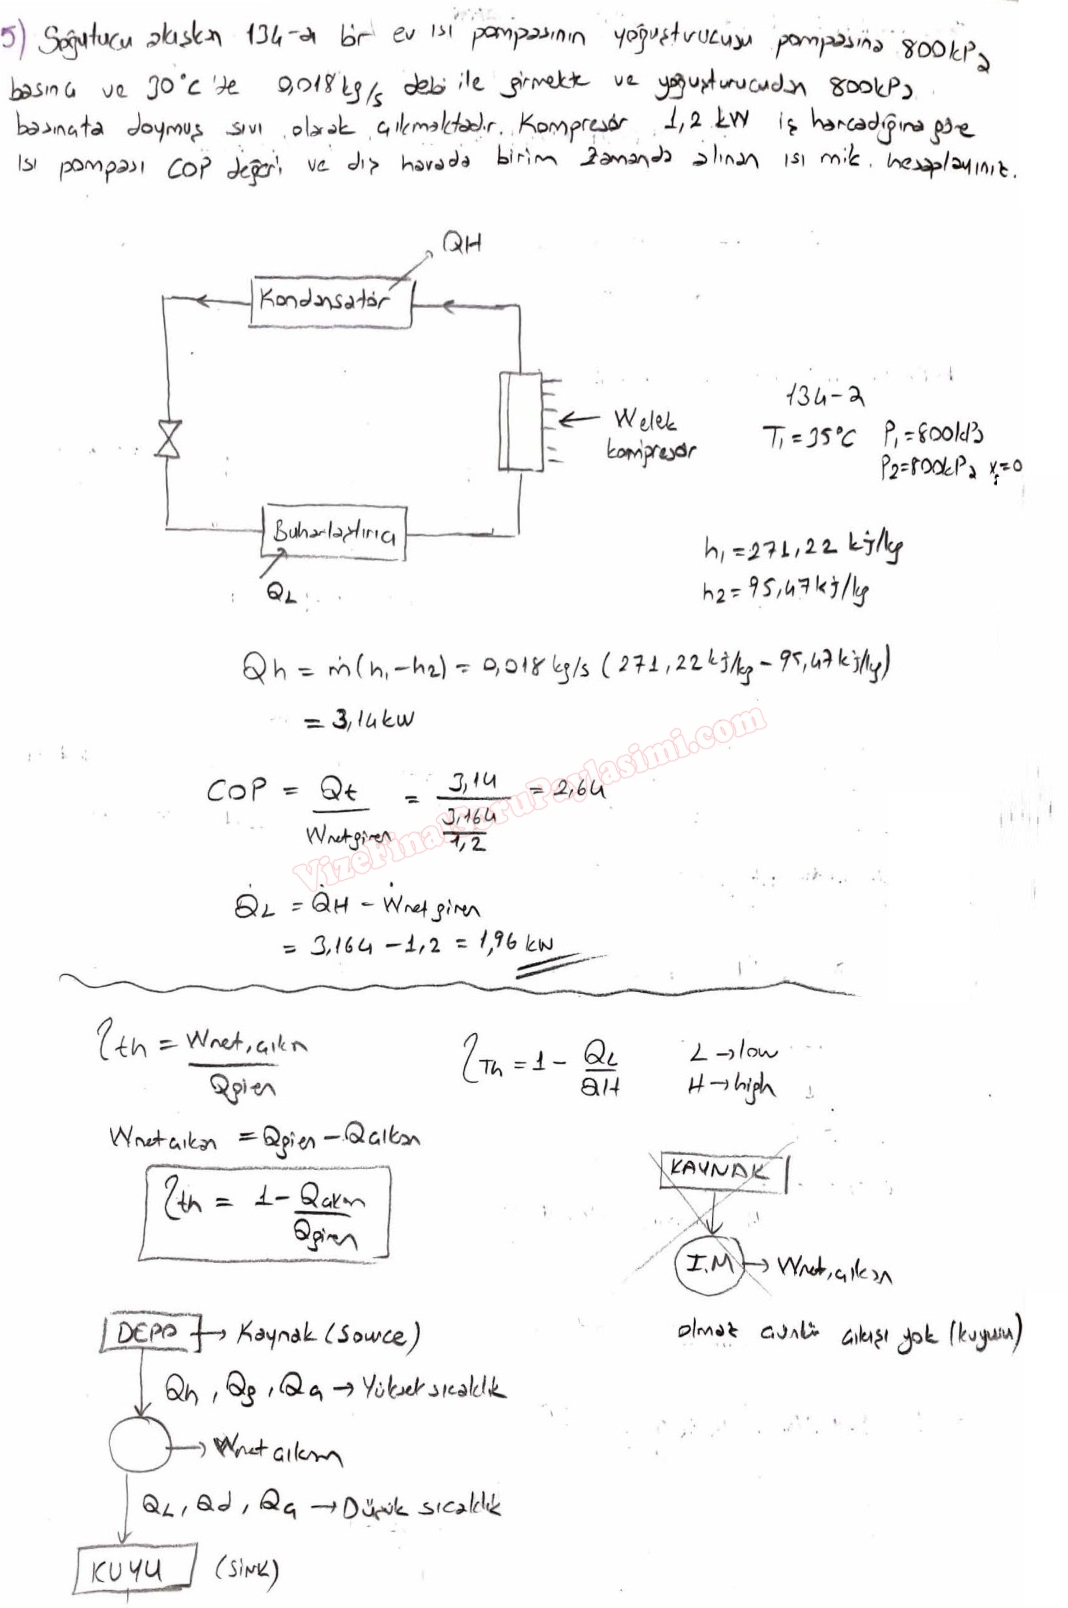 5) Soğutucu akışkan 134-a bir ev ısı pompasının yoğuşturucusu pompasına 800kPa
basınç ve 30°C'te 0,018kg/s debi ile girmekte ve yoğuşturucudan 800kPa
basınçta doymuş sıvı olarak çıkmaktadır. Kompresör 1,2 kW iş harcadığına göre
ısı pompası COP değeri ve dış havada birim zamanda alınan ısı mik. hesaplayınız.
QH
Kondansatör
Welek
kompresör
134-a
T1 = 35°C P1 = 800kPa
P2=800kPa x=0
Buharlaştırıcı
QL
h1 = 271,22 kj/kg
h2 = 95,47kj/kg
Qh = ṁ(h1-h2) = 0,018 kg/s (271,22kj/kg - 95,47kj/kg)
= 3,14kW
COP = Qt / Wnetgiren = 3,14 / 3,164 / 1,2 = 2,64
VizeFinalSoruPaylasimi.com
Q̇L = Q̇H - Ẇnet giren
= 3,164 - 1,2 = 1,96 kW
ηth = Wnet,çıkn / Qgiren
ηTh = 1 - QL / QH
L → low
H → high
Wnetçıkan = Qgiren - Qçıkan
ηth = 1 - Qçıkan / Qgiren
KAYNAK
I.M → Wnet,çıkan
olmaz çünkü çıkışı yok (kuyusu)
DEPO → Kaynak (Source)
Qh, Qg, Qa → Yüksek sıcaklık
→ Wnet çıkan
QL, Qd, Qç → Düşük sıcaklık
KUYU (SİNK)